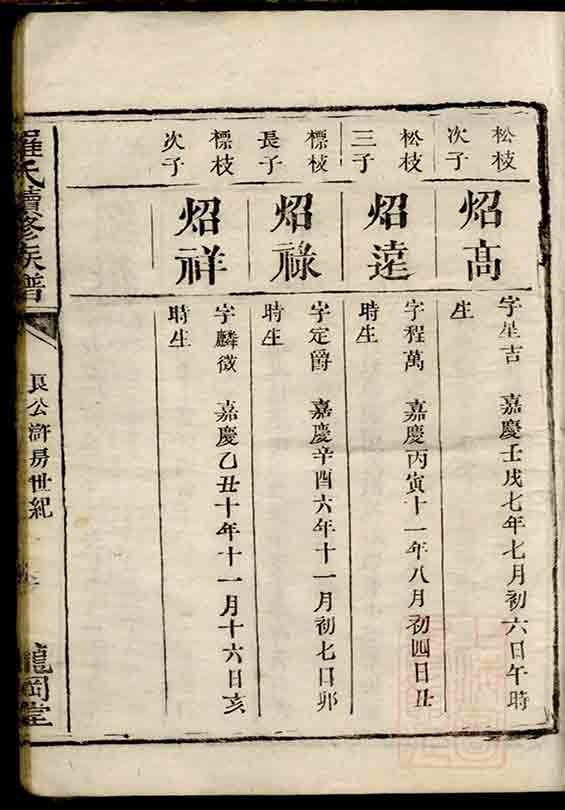 松枝
次子
炤高
字星吉 嘉慶壬戌七年七月初六日午時
生
松枝
三子
炤遠
字程萬 嘉慶丙寅十一年八月初四日丑
時生
標枝
長子
炤祿
字定爵 嘉慶辛酉六年十一月初七日卯
時生
標枝
次子
炤祥
字麟徵 嘉慶乙丑十年十一月十六日亥
時生
羅氏續修族譜
良公滸房世紀
龍岡堂